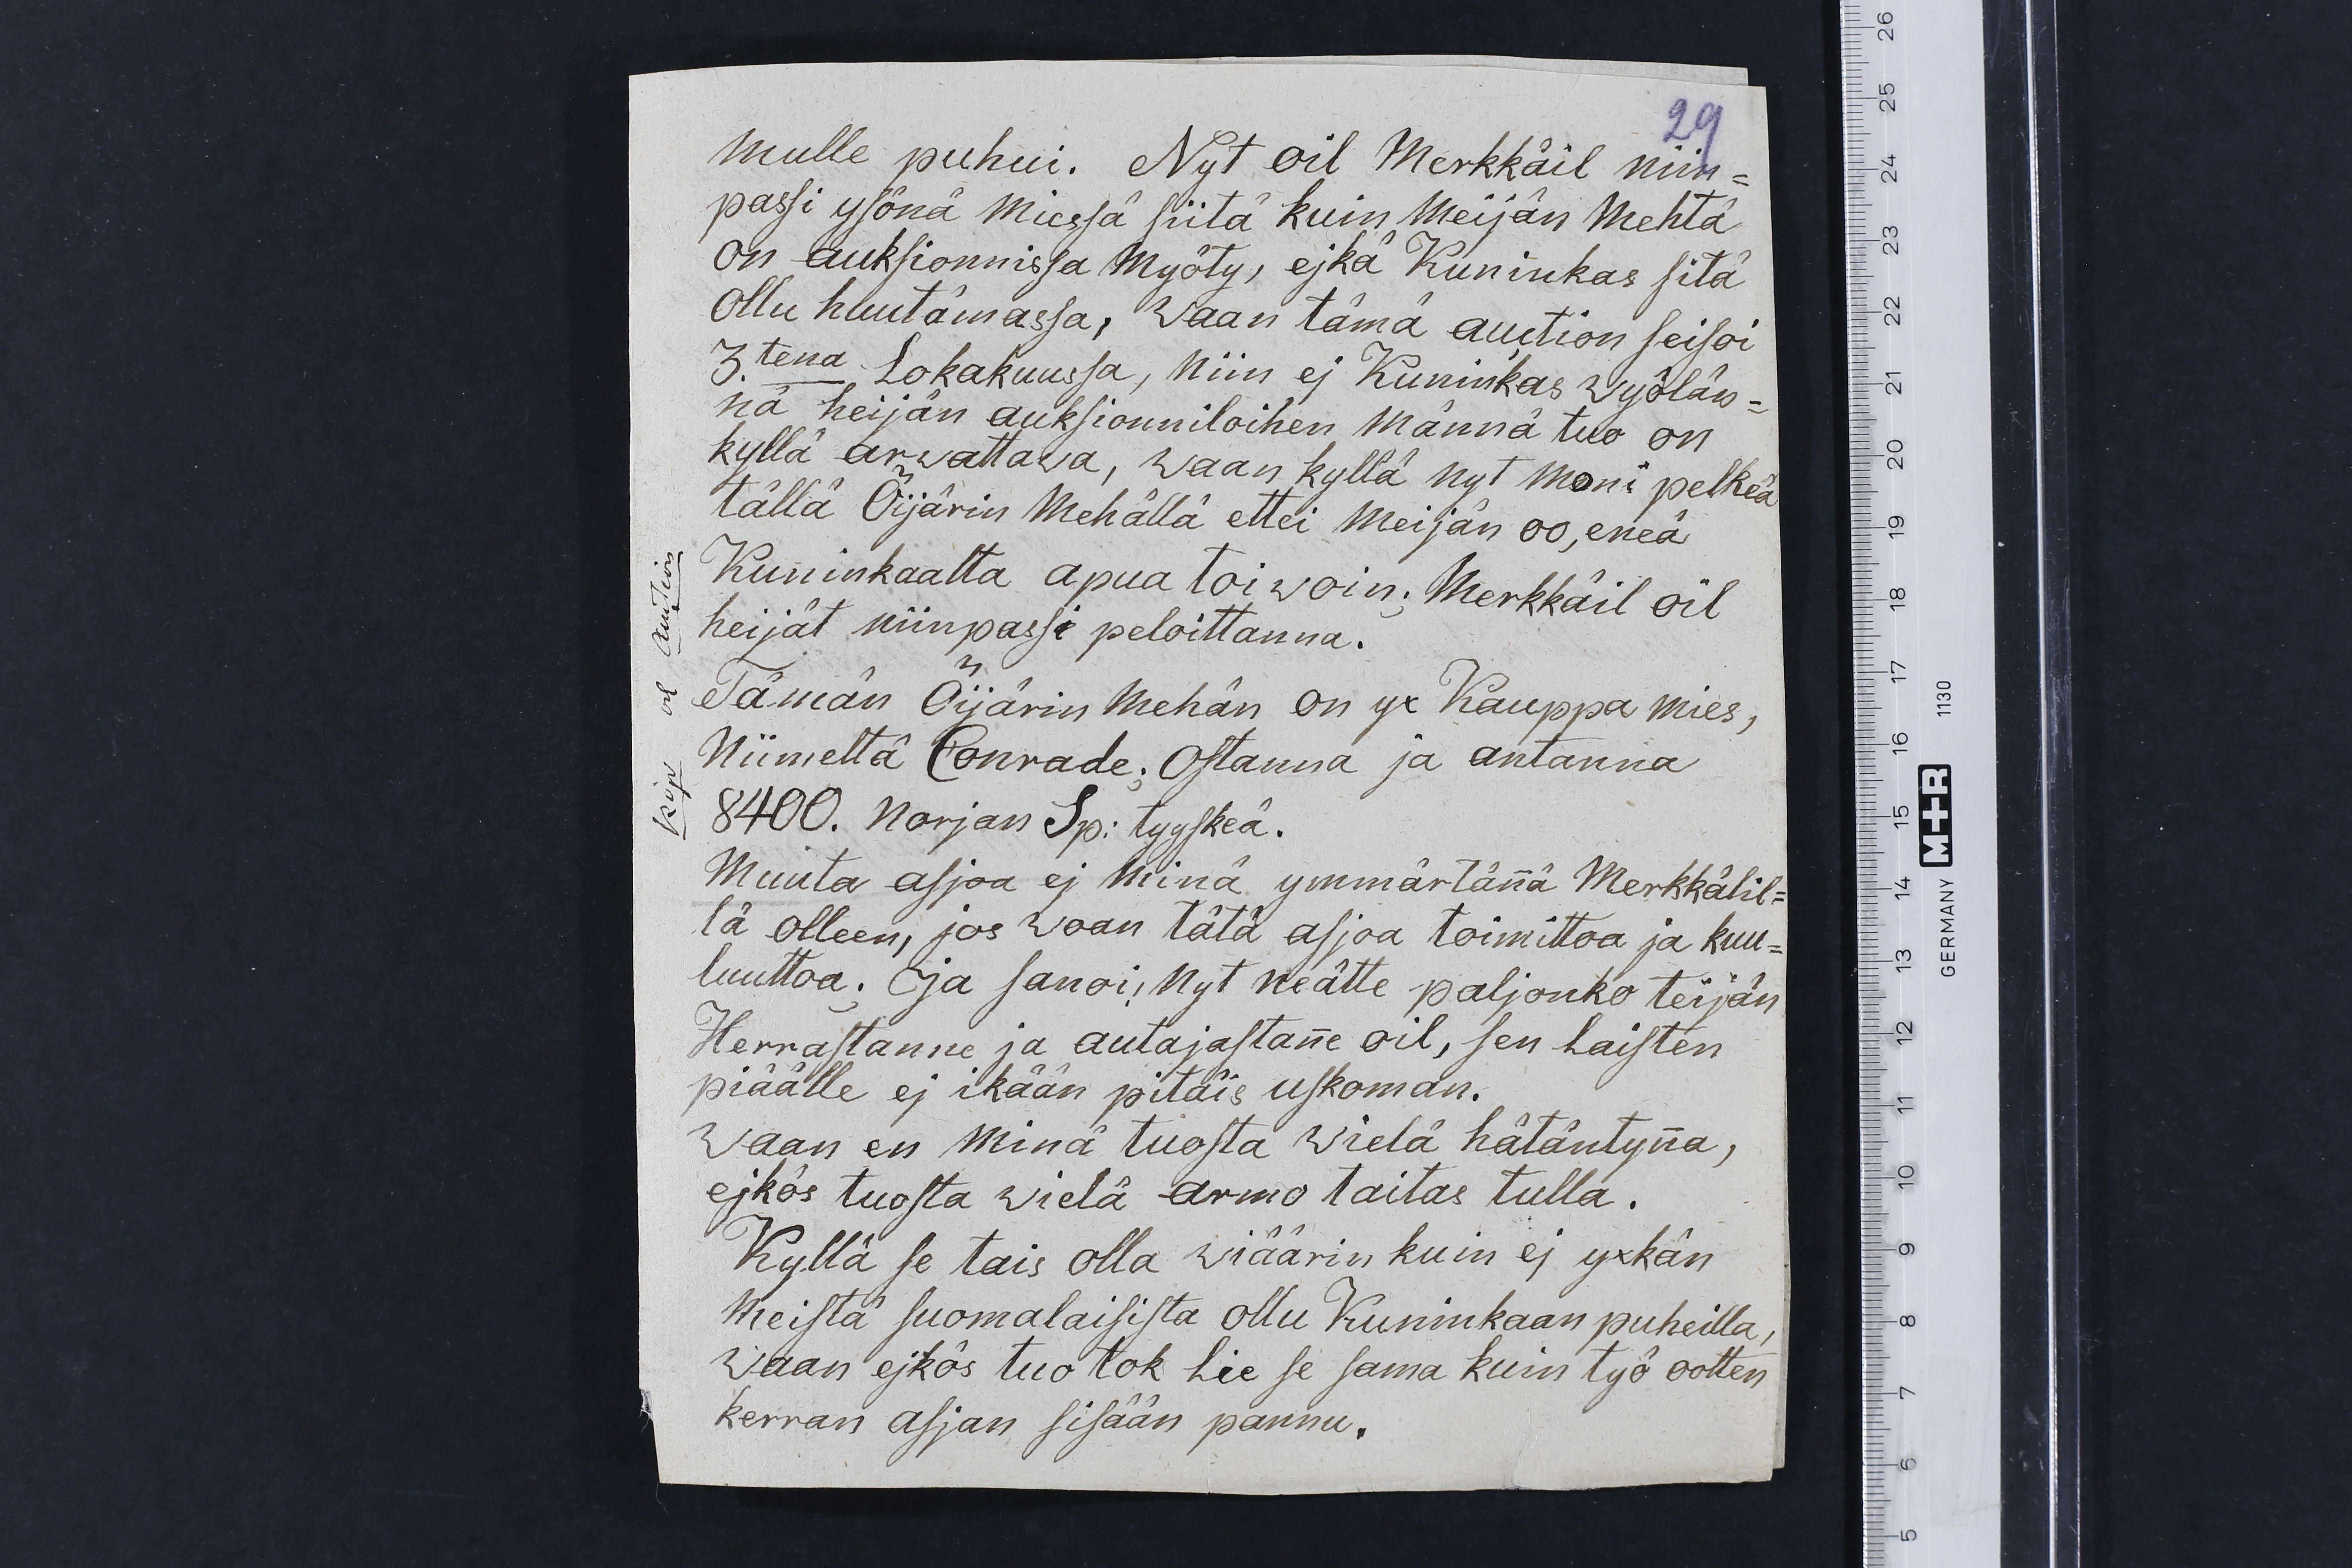 29
mulle puhui. Nyt oil Merkkäil niin=
passi ysönä miessä siitä kuin meijän mehtä
on auksionnissa myöty, ejkä Kuninkas sitä
ollu huutamassa, waan tämä auction seisoi
3.tena Lokakuussa, niin ej Kuninkas wyölän=
nä heijän auksionniloihen männä tuo on
kyllä arwattawa, waan kyllä nyt moni pelkeä
tällä Öijärin mehällä ettei meijän oo, eneä
Kuninkaalta apua toiwoin; Merkkäil oil
heijät niinpassi peloittanna.
Tämän Öijärin mehän on yx Kauppa mies,
Niimeltä Conrade; ostanna ja antanna
8400. Norjan Sp: tyyskeä.
Muuta asjoa ej minä ymmärtän̄ä Merkkälil=
lä olleen, jos woan tätä asjoa toimittoa ja kuu=
luuttoa. Ja sanoi, nyt neätte paljonko teijän
Herrastanne ja autajastan̄e oil, sen laisten
piäälle ej ikään pitäis uskoman.
Waan en minä tuosta wielä hätäntyn̄a,
ejkös tuosta wielä armo taitas tulla.
Kyllä se tais olla wiäärin kuin ej yxkän
meistä suomalaisista ollu Kuninkaan puheilla,
waan ejkös tuo tok lie se sama kuin työ ootten
kerran asjan sisään pannu.
Kiöp vel Auction
26
25
24
23
22
21
20
19
18
17
16
15
14
13
12
11
10
9
8
7
6
5
GERMANY M+R 1130